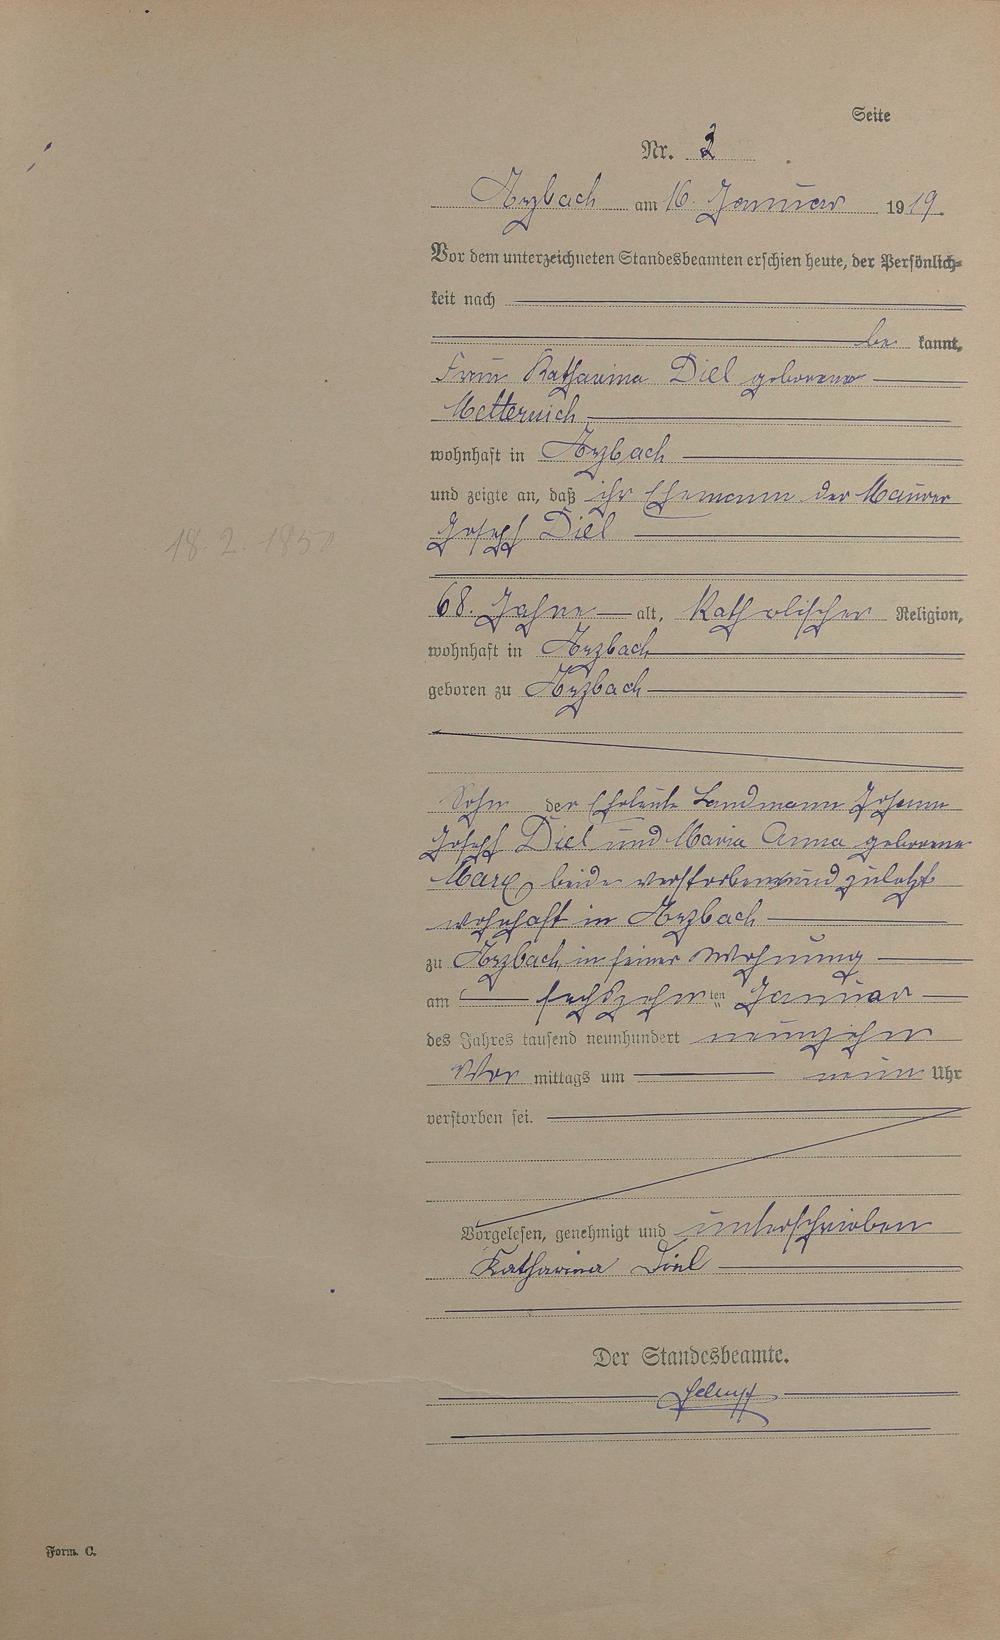 Seite
Nr. 2
Arzbach am 16. Januar 1919.
Vor dem unterzeichneten Standesbeamten erschien heute, der Persönlich-
keit nach
be kannt,
Frau Katharina Diel geborene
Metternich
wohnhaft in Arzbach
und zeigte an, daß ihr Ehemann der Maurer
Joseph Diel
18. 2. 185
68. Jahre alt, Katholischer Religion,
wohnhaft in Arzbach
geboren zu Arzbach
Sohn der Eheleute Landmann Johann
Joseph Diel und Maria Anna geborene
Marx, beide verstorben und zuletzt
wohnhaft in Arzbach
zu Arzbach in seiner Wohnung
am sechszehnten Januar
des Jahres tausend neunhundert neunzehn
Vor mittags um neun Uhr
verstorben sei.
Vorgelesen, genehmigt und unterschrieben
Katharina Diel
Der Standesbeamte.
Form. C.